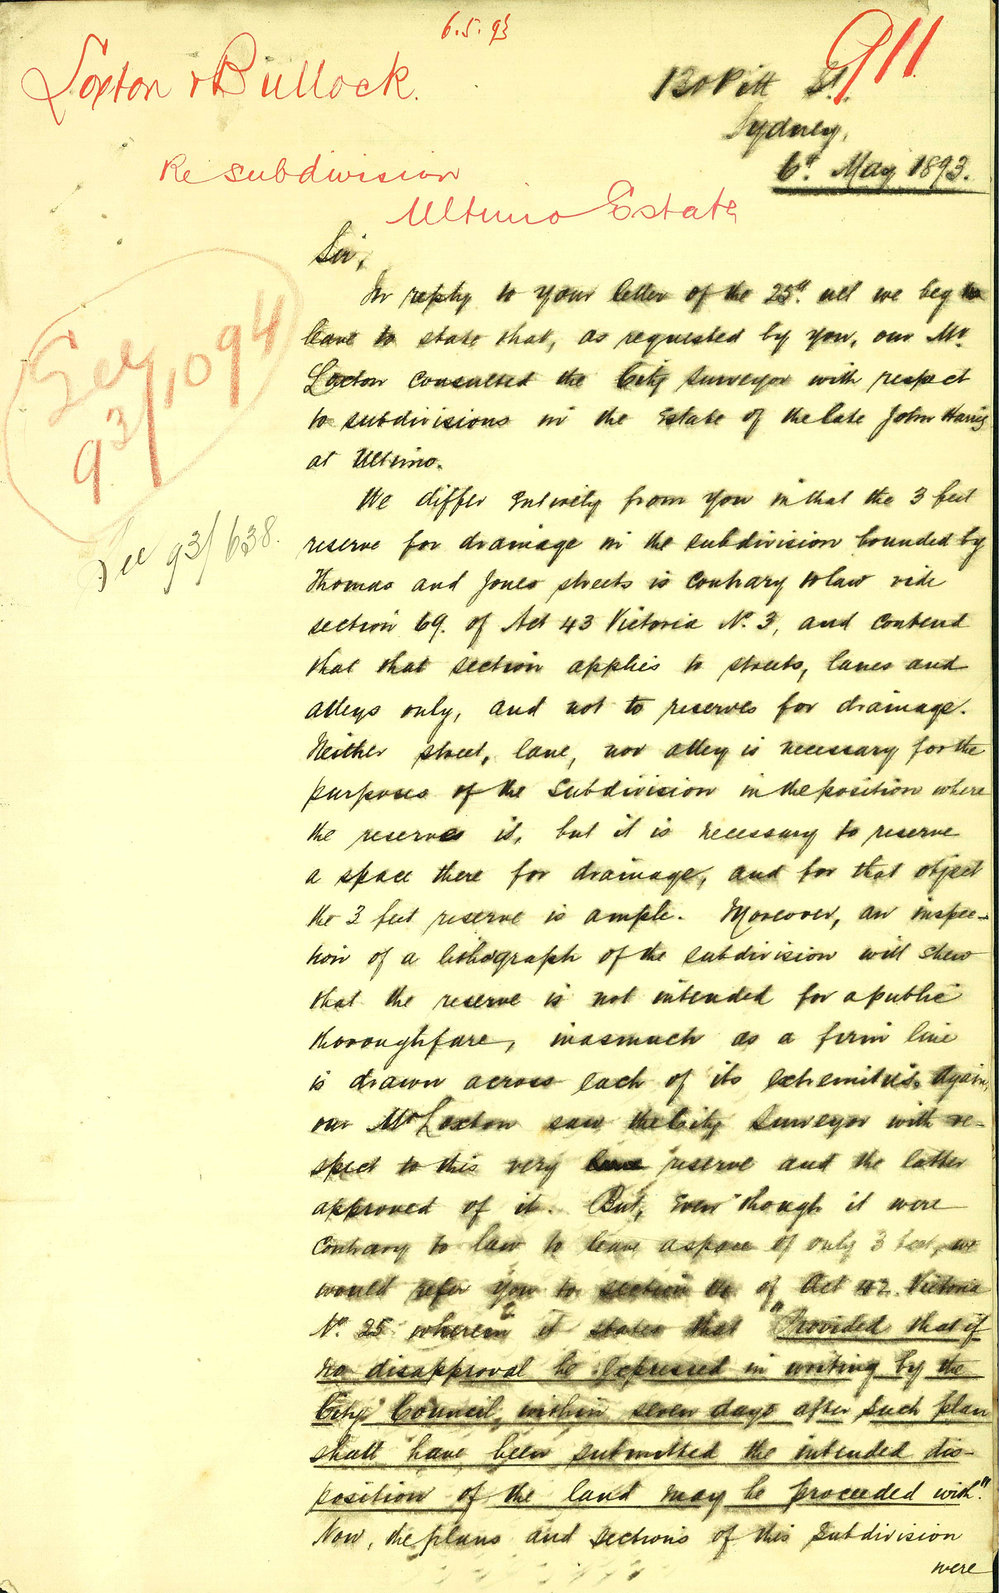 6.5.93
911
Loxton & Bullock.
130 Pitt St.
Sydney,
6th May 1893.
Re subdivision
Ultimo Estate
Sir,
In reply to your letter of the 25th ult we beg
leave to state that, as requested by you, our Mr.
Loxton consulted the City Surveyor with respect
to subdivisions in the Estate of the late John Harris
at Ultimo.
We differ entirely from you in that the 3 feet
reserve for drainage in the subdivision bounded by
Thomas and Jones streets is contrary to law vide
section 69. of Act 43 Victoria No. 3, and contend
that that section applies to streets, lanes and
alleys only, and not to reserves for drainage.
Neither street, lane, nor alley is necessary for the
purposes of the subdivision in the position where
the reserve is, but it is necessary to reserve
a space there for drainage, and for that object
the 3 feet reserve is ample. Moreover, an inspec-
tion of a lithograph of the subdivision will shew
that the reserve is not intended for a public
thoroughfare, inasmuch as a firm line
is drawn across each of its extremities. Again,
our Mr Loxton saw the City Surveyor with re-
spect to this very reserve and the latter
approved of it. But, even though it were
contrary to law to leave a space of only 3 feet, we
would refer you to section of Act 42. Victoria
No. 25 wherein it states that "Provided that if
no disapproval be expressed in writing by the
City Council, within seven days after such plan
shall have been submitted the intended dis-
position of the land may be proceeded with."
Now, the plans and sections of this subdivision
were
See
93/1094
See 93/638.